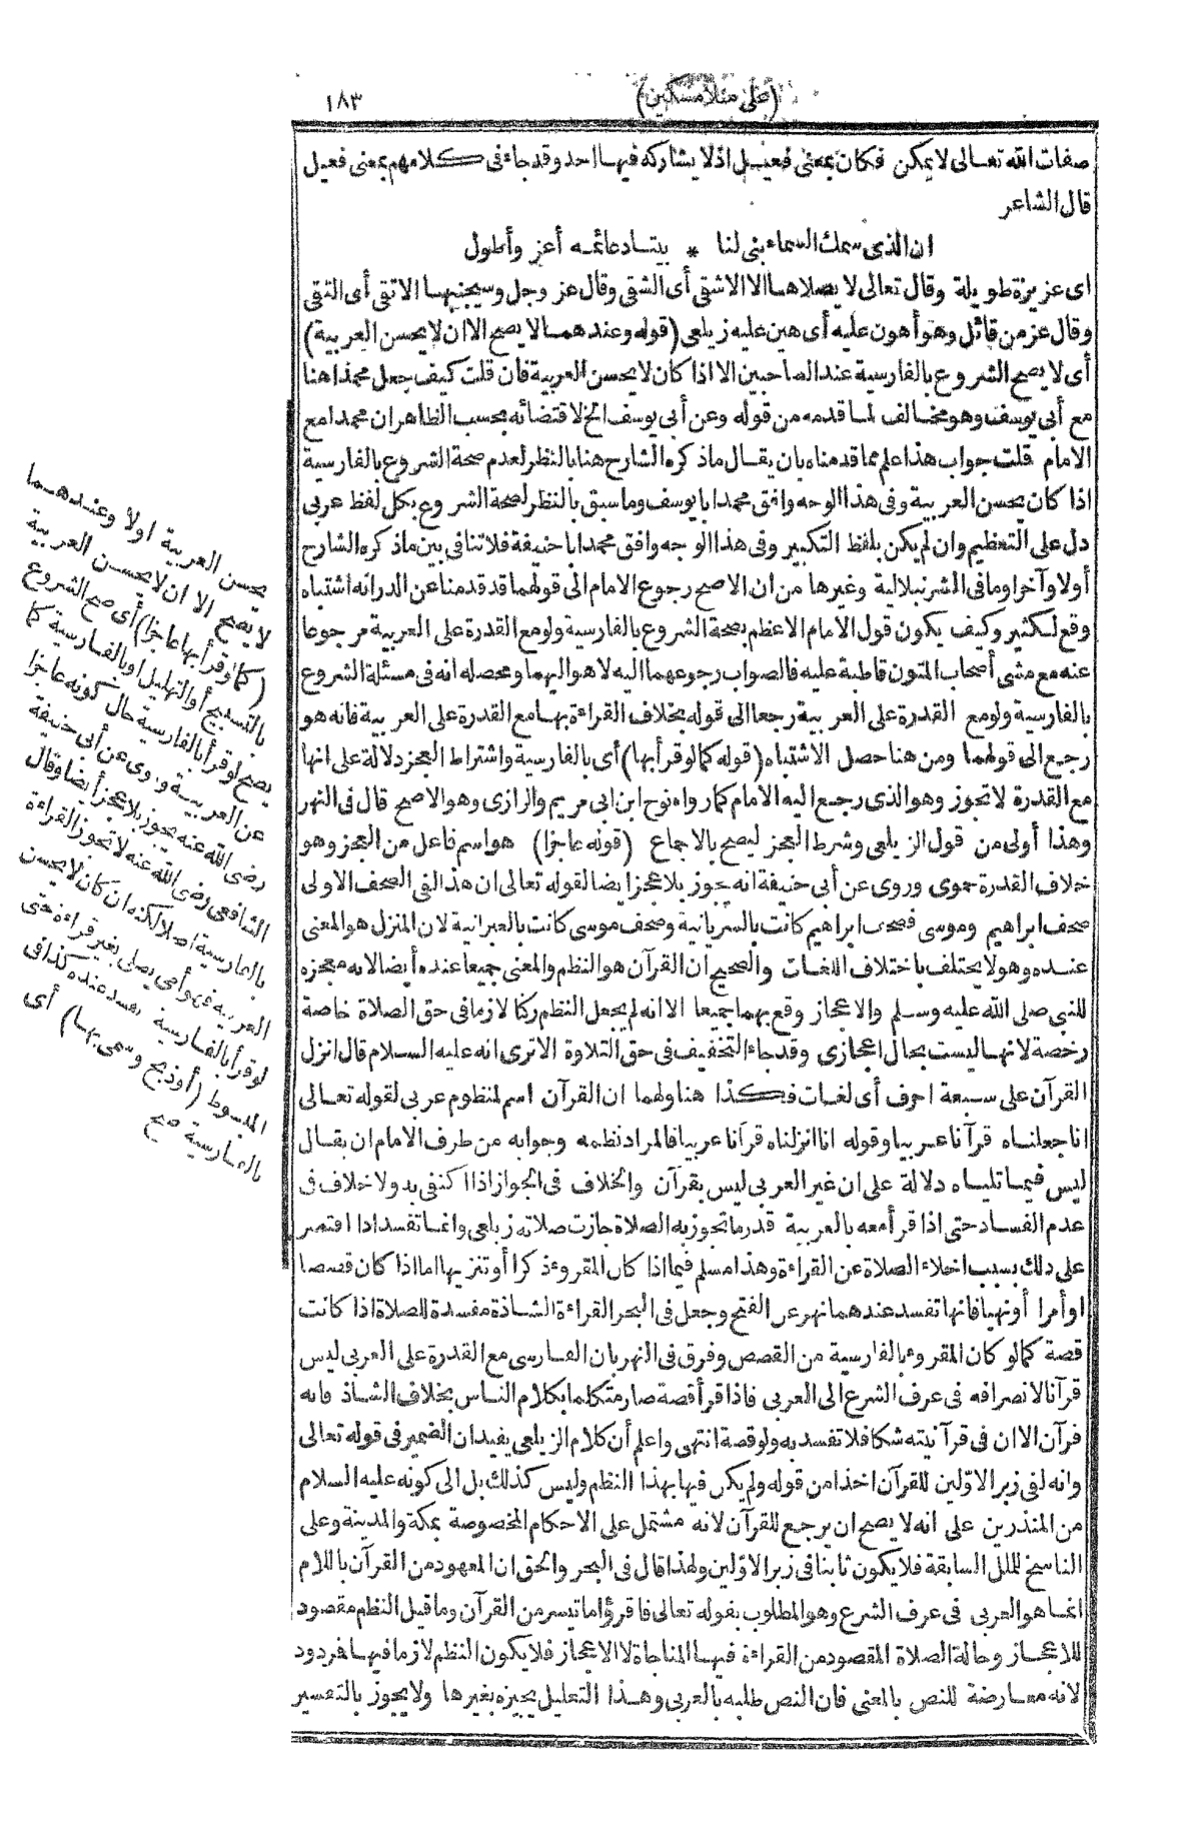 (على منلا مسكين) ١٨٣
صفات الله تعالى لا يمكن فكان بمعنى فعيل اذ لا يشاركه فيها احد وقد جاء فى كلامهم بمعنى فعيل
قال الشاعر
ان الذى سمك السماء بنى لنا * بيتا دعائمه أعز وأطول
اى عزيزة طويلة وقال تعالى لا يصلاها الا الاشقى أى الشقى وقال عز وجل وسيجنبها الاتقى أى التقى
وقال عز من قائل وهو أهون عليه أى هين عليه زيلعى (قوله وعندهما لا يصح الا ان لا يحسن العربية)
أى لا يصح الشروع بالفارسية عند الصاحبين الا اذا كان لا يحسن العربية فان قلت كيف جعل محمدا هنا
مع أبى يوسف وهو مخالف لما قدمه من قوله وعن أبى يوسف الخ لاقتضائه بحسب الظاهر ان محمدا مع
الامام قلت جواب هذا علم مما قدمناه بان يقال ما ذكره الشارح هنا بالنظر لعدم صحة الشروع بالفارسية
اذا كان يحسن العربية وفى هذا الوجه وافق محمد ابا يوسف وما سبق بالنظر لصحة الشروع بكل لفظ عربى
دل على التعظيم وان لم يكن بلفظ التكبير وفى هذا الوجه وافق محمد ابا حنيفة فلا تنافى بين ما ذكره الشارح
أولا وآخرا وما فى الشرنبلالية وغيرها من ان الاصح رجوع الامام الى قولهما قد قدمنا عن الدر انه اشتباه
وقع لكثير وكيف يكون قول الامام الاعظم بصحة الشروع بالفارسية ولو مع القدرة على العربية مرجوعا
عنه مع مشى أصحاب المتون قاطبة عليه فالصواب رجوعهما اليه لا هو اليهما ومحصله انه فى مسئلة الشروع
بالفارسية ولو مع القدرة على العربية رجعا الى قوله بخلاف القراءة بها مع القدرة على العربية فانه هو
رجع الى قولهما ومن هنا حصل الاشتباه (قوله كما لو قرأ بها) أى بالفارسية واشتراط العجز دلالة على انها
مع القدرة لا تجوز وهو الذى رجع اليه الامام كما رواه نوح ابن ابى مريم والرازى وهو الاصح قال فى النهر
وهذا أولى من قول الزيلعى وشرط العجز ليصح بالاجماع (قوله عاجزا) هو اسم فاعل من العجز وهو
خلاف القدرة حموى وروى عن أبى حنيفة انه يجوز بلا عجز ايضا لقوله تعالى ان هذا لفى الصحف الاولى
صحف ابراهيم وموسى فصحف ابراهيم كانت بالسريانية وصحف موسى كانت بالعبرانية لان المنزل هو المعنى
عنده وهو لا يختلف باختلاف اللغات والصحيح ان القرآن هو النظم والمعنى جميعا عنده أيضا لانه معجزه
للنبى صلى الله عليه وسلم والاعجاز وقع بهما جميعا الا انه لم يجعل النظم ركنا لازما فى حق الصلاة خاصة
رخصة لانها ليست بحال اعجازى وقد جاء التخفيف فى حق التلاوة الا ترى انه عليه السلام قال انزل
القرآن على سبعة احرف أى لغات فكذا هنا ولهما ان القرآن اسم لمنظوم عربى لقوله تعالى
انا جعلناه قرآنا عربيا وقوله انا انزلناه قرآنا عربيا فالمراد نظمه وجوابه من طرف الامام ان يقال
ليس فيما تلياه دلالة على ان غير العربى ليس بقرآن والخلاف فى الجواز اذا اكتفى به ولا خلاف فى
عدم الفساد حتى اذا قرأ معه بالعربية قدر ما تجوز به الصلاة جازت صلاته زيلعى وانما تفسد اذا اقتصر
على ذلك بسبب اخلاء الصلاة عن القراءة وهذا مسلم فيما اذا كان المقروء ذكرا أو تنزيها اما اذا كان قصصا
او أمرا أو نهيا فانها تفسد عندهما نهر عن الفتح وجعل فى البحر القراءة الشاذة مفسدة للصلاة اذا كانت
قصة كما لو كان المقروء بالفارسية من القصص وفرق فى النهر بان الفارسى مع القدرة على العربى ليس
قرآنا لانصرافه فى عرف الشرع الى العربى فاذا قرأ قصة صار متكلما بكلام الناس بخلاف الشاذ فانه
قرآن الا ان فى قرآنيته شكا فلا تفسد به ولو قصة انتهى واعلم أن كلام الزيلعى يفيد ان الضمير فى قوله تعالى
وانه لفى زبر الاوّلين للقرآن اخذا من قوله ولم يكن فيها بهذا النظم وليس كذلك بل الى كونه عليه السلام
من المنذرين على انه لا يصح ان يرجع للقرآن لانه مشتمل على الاحكام المخصوصة بمكة والمدينة وعلى
الناسخ للملل السابقة فلا يكون ثابتا فى زبر الاوّلين ولهذا قال فى البحر والحق ان المعهود من القرآن باللام
انما هو العربى فى عرف الشرع وهو المطلوب بقوله تعالى فاقرؤا ما تيسر من القرآن وما قيل النظم مقصود
للاعجاز وحالة الصلاة المقصود من القراءة فيها المناجاة لا الاعجاز فلا يكون النظم لازما فيها فمردود
لانه معارضة للنص بالمعنى فان النص طلبه بالعربى وهذا التعليل يجيزه بغيرها ولا يجوز بالتفسير
يحسن العربية اولا وعندهما
لا يصح الا ان لا يحسن العربية
(كما لو قرأ بها عاجزا) أى صح الشروع
بالتسبيح أو التهليل او بالفارسية كما
يصح لو قرأ بالفارسية حال كونه عاجزا
عن العربية وروى عن أبى حنيفة
رضى الله عنه يجوز بلا عجز أيضا وقال
الشافعى رضى الله عنه لا تجوز القراءة
بالفارسية اصلا لكنه ان كان لا يحسن
العربيه فهو أمى يصلى بغير قراءة حتى
لو قرأ بالفارسية تفسد عنده كذا فى
المبسوط (أو ذبح وسمى بها) أى
بالفارسية صح